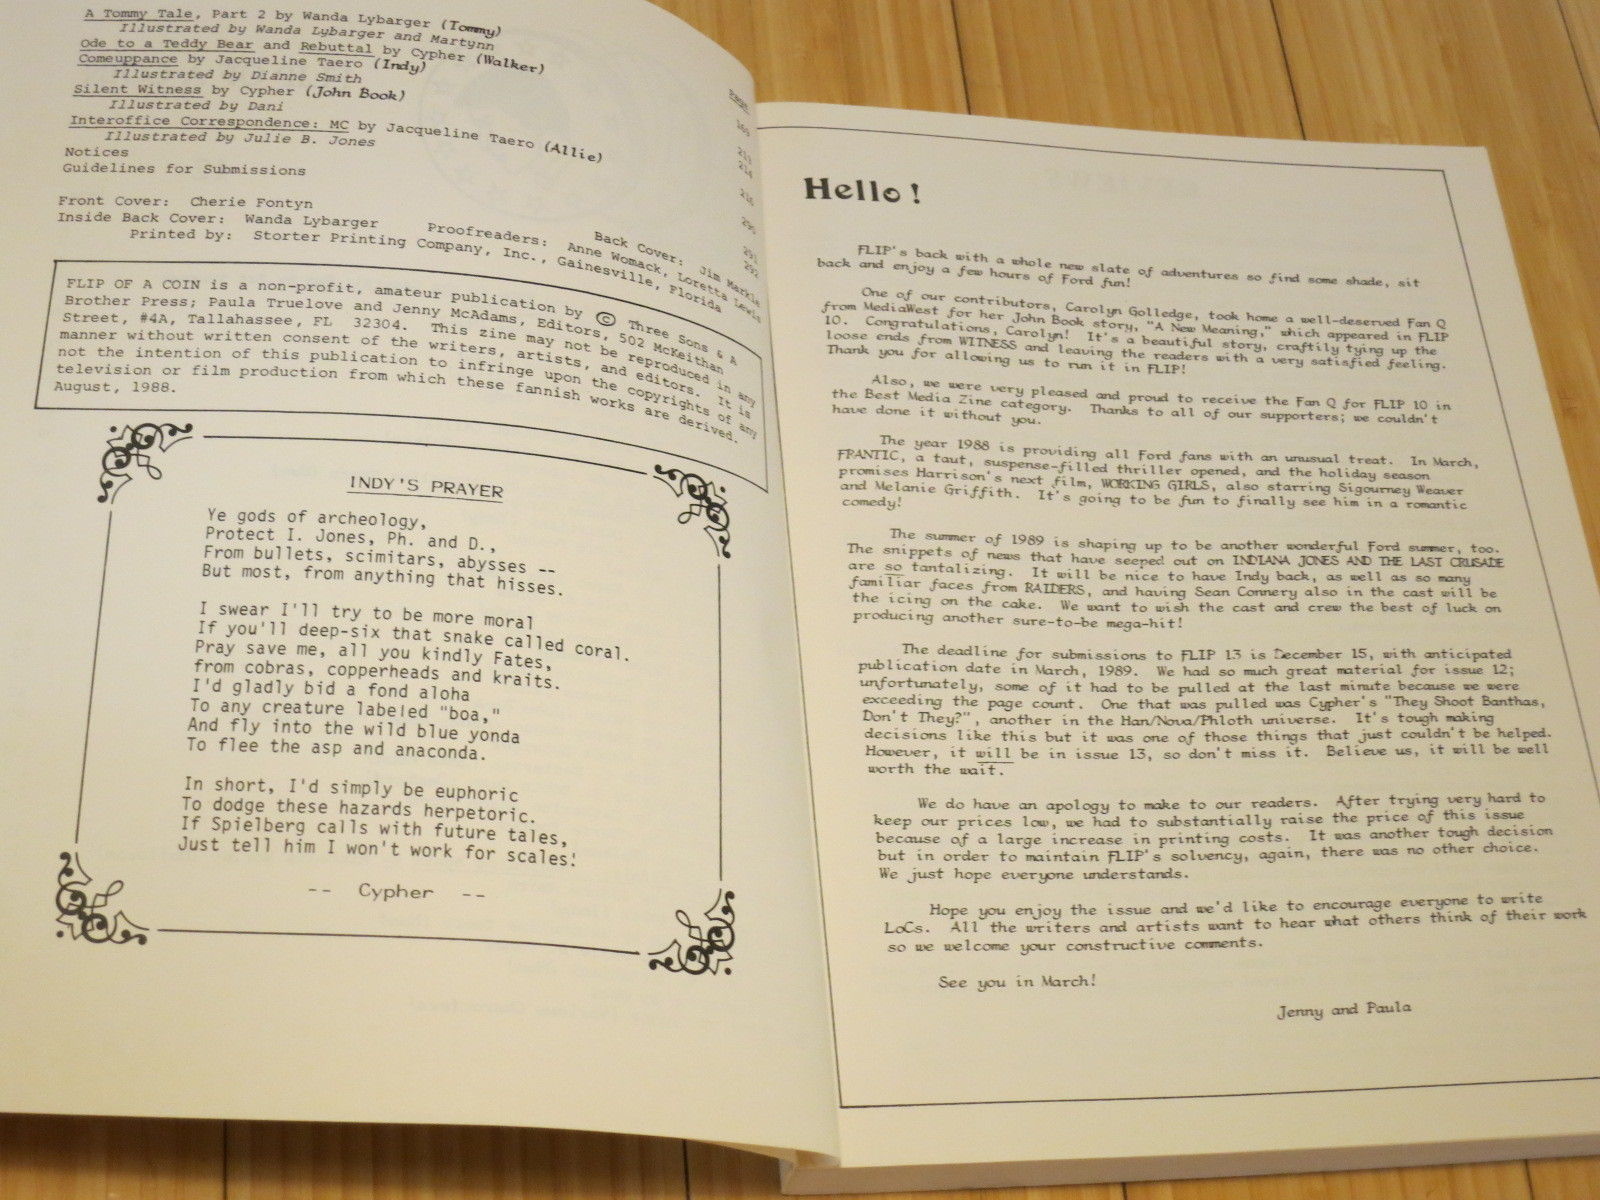 A Tommy Tale, Part 2 by Wanda Lybarger (Tommy)
Illustrated by Wanda Lybarger and Martynn
Ode to a Teddy Bear and Rebuttal by Cypher (Walker)
Comeuppance by Jacqueline Taero (Indy)
Illustrated by Dianne Smith
Silent Witness by Cypher (John Book)
Illustrated by Dani
Interoffice Correspondence: MC by Jacqueline Taero (Allie)
Illustrated by Julie B. Jones
Notices
Guidelines for Submissions
Page
169
213
214
216
290
291
292
Front Cover: Cherie Fontyn Back Cover: Jim Markle
Inside Back Cover: Wanda Lybarger Proofreaders: Anne Womack, Loretta Lewis
Printed by: Storter Printing Company, Inc., Gainesville, Florida
FLIP OF A COIN is a non-profit, amateur publication by © Three Sons & A
Brother Press; Paula Truelove and Jenny McAdams, Editors, 502 McKeithan
Street, #4A, Tallahassee, FL 32304. This zine may not be reproduced in any
manner without written consent of the writers, artists, and editors. It is
not the intention of this publication to infringe upon the copyrights of any
television or film production from which these fannish works are derived.
August, 1988.
INDY'S PRAYER
Ye gods of archeology,
Protect I. Jones, Ph. and D.,
From bullets, scimitars, abysses --
But most, from anything that hisses.
I swear I'll try to be more moral
If you'll deep-six that snake called coral.
Pray save me, all you kindly Fates,
from cobras, copperheads and kraits.
I'd gladly bid a fond aloha
To any creature labeled "boa,"
And fly into the wild blue yonda
To flee the asp and anaconda.
In short, I'd simply be euphoric
To dodge these hazards herpetoric.
If Spielberg calls with future tales,
Just tell him I won't work for scales!
-- Cypher --
Hello!
FLIP's back with a whole new slate of adventures so find some shade, sit
back and enjoy a few hours of Ford fun!
One of our contributors, Carolyn Golledge, took home a well-deserved Fan Q
from MediaWest for her John Book story, "A New Meaning," which appeared in FLIP
10. Congratulations, Carolyn! It's a beautiful story, craftily tying up the
loose ends from WITNESS and leaving the readers with a very satisfied feeling.
Thank you for allowing us to run it in FLIP!
Also, we were very pleased and proud to receive the Fan Q for FLIP 10 in
the Best Media Zine category. Thanks to all of our supporters; we couldn't
have done it without you.
The year 1988 is providing all Ford fans with an unusual treat. In March,
FRANTIC, a taut, suspense-filled thriller opened, and the holiday season
promises Harrison's next film, WORKING GIRLS, also starring Sigourney Weaver
and Melanie Griffith. It's going to be fun to finally see him in a romantic
comedy!
The summer of 1989 is shaping up to be another wonderful Ford summer, too.
The snippets of news that have seeped out on INDIANA JONES AND THE LAST CRUSADE
are so tantalizing. It will be nice to have Indy back, as well as so many
familiar faces from RAIDERS, and having Sean Connery also in the cast will be
the icing on the cake. We want to wish the cast and crew the best of luck on
producing another sure-to-be mega-hit!
The deadline for submissions to FLIP 13 is December 15, with anticipated
publication date in March, 1989. We had so much great material for issue 12;
unfortunately, some of it had to be pulled at the last minute because we were
exceeding the page count. One that was pulled was Cypher's "They Shoot Banthas,
Don't They?", another in the Han/Nova/Phloth universe. It's tough making
decisions like this but it was one of those things that just couldn't be helped.
However, it will be in issue 13, so don't miss it. Believe us, it will be well
worth the wait.
We do have an apology to make to our readers. After trying very hard to
keep our prices low, we had to substantially raise the price of this issue
because of a large increase in printing costs. It was another tough decision
but in order to maintain FLIP's solvency, again, there was no other choice.
We just hope everyone understands.
Hope you enjoy the issue and we'd like to encourage everyone to write
LoCs. All the writers and artists want to hear what others think of their work
so we welcome your constructive comments.
See you in March!
Jenny and Paula